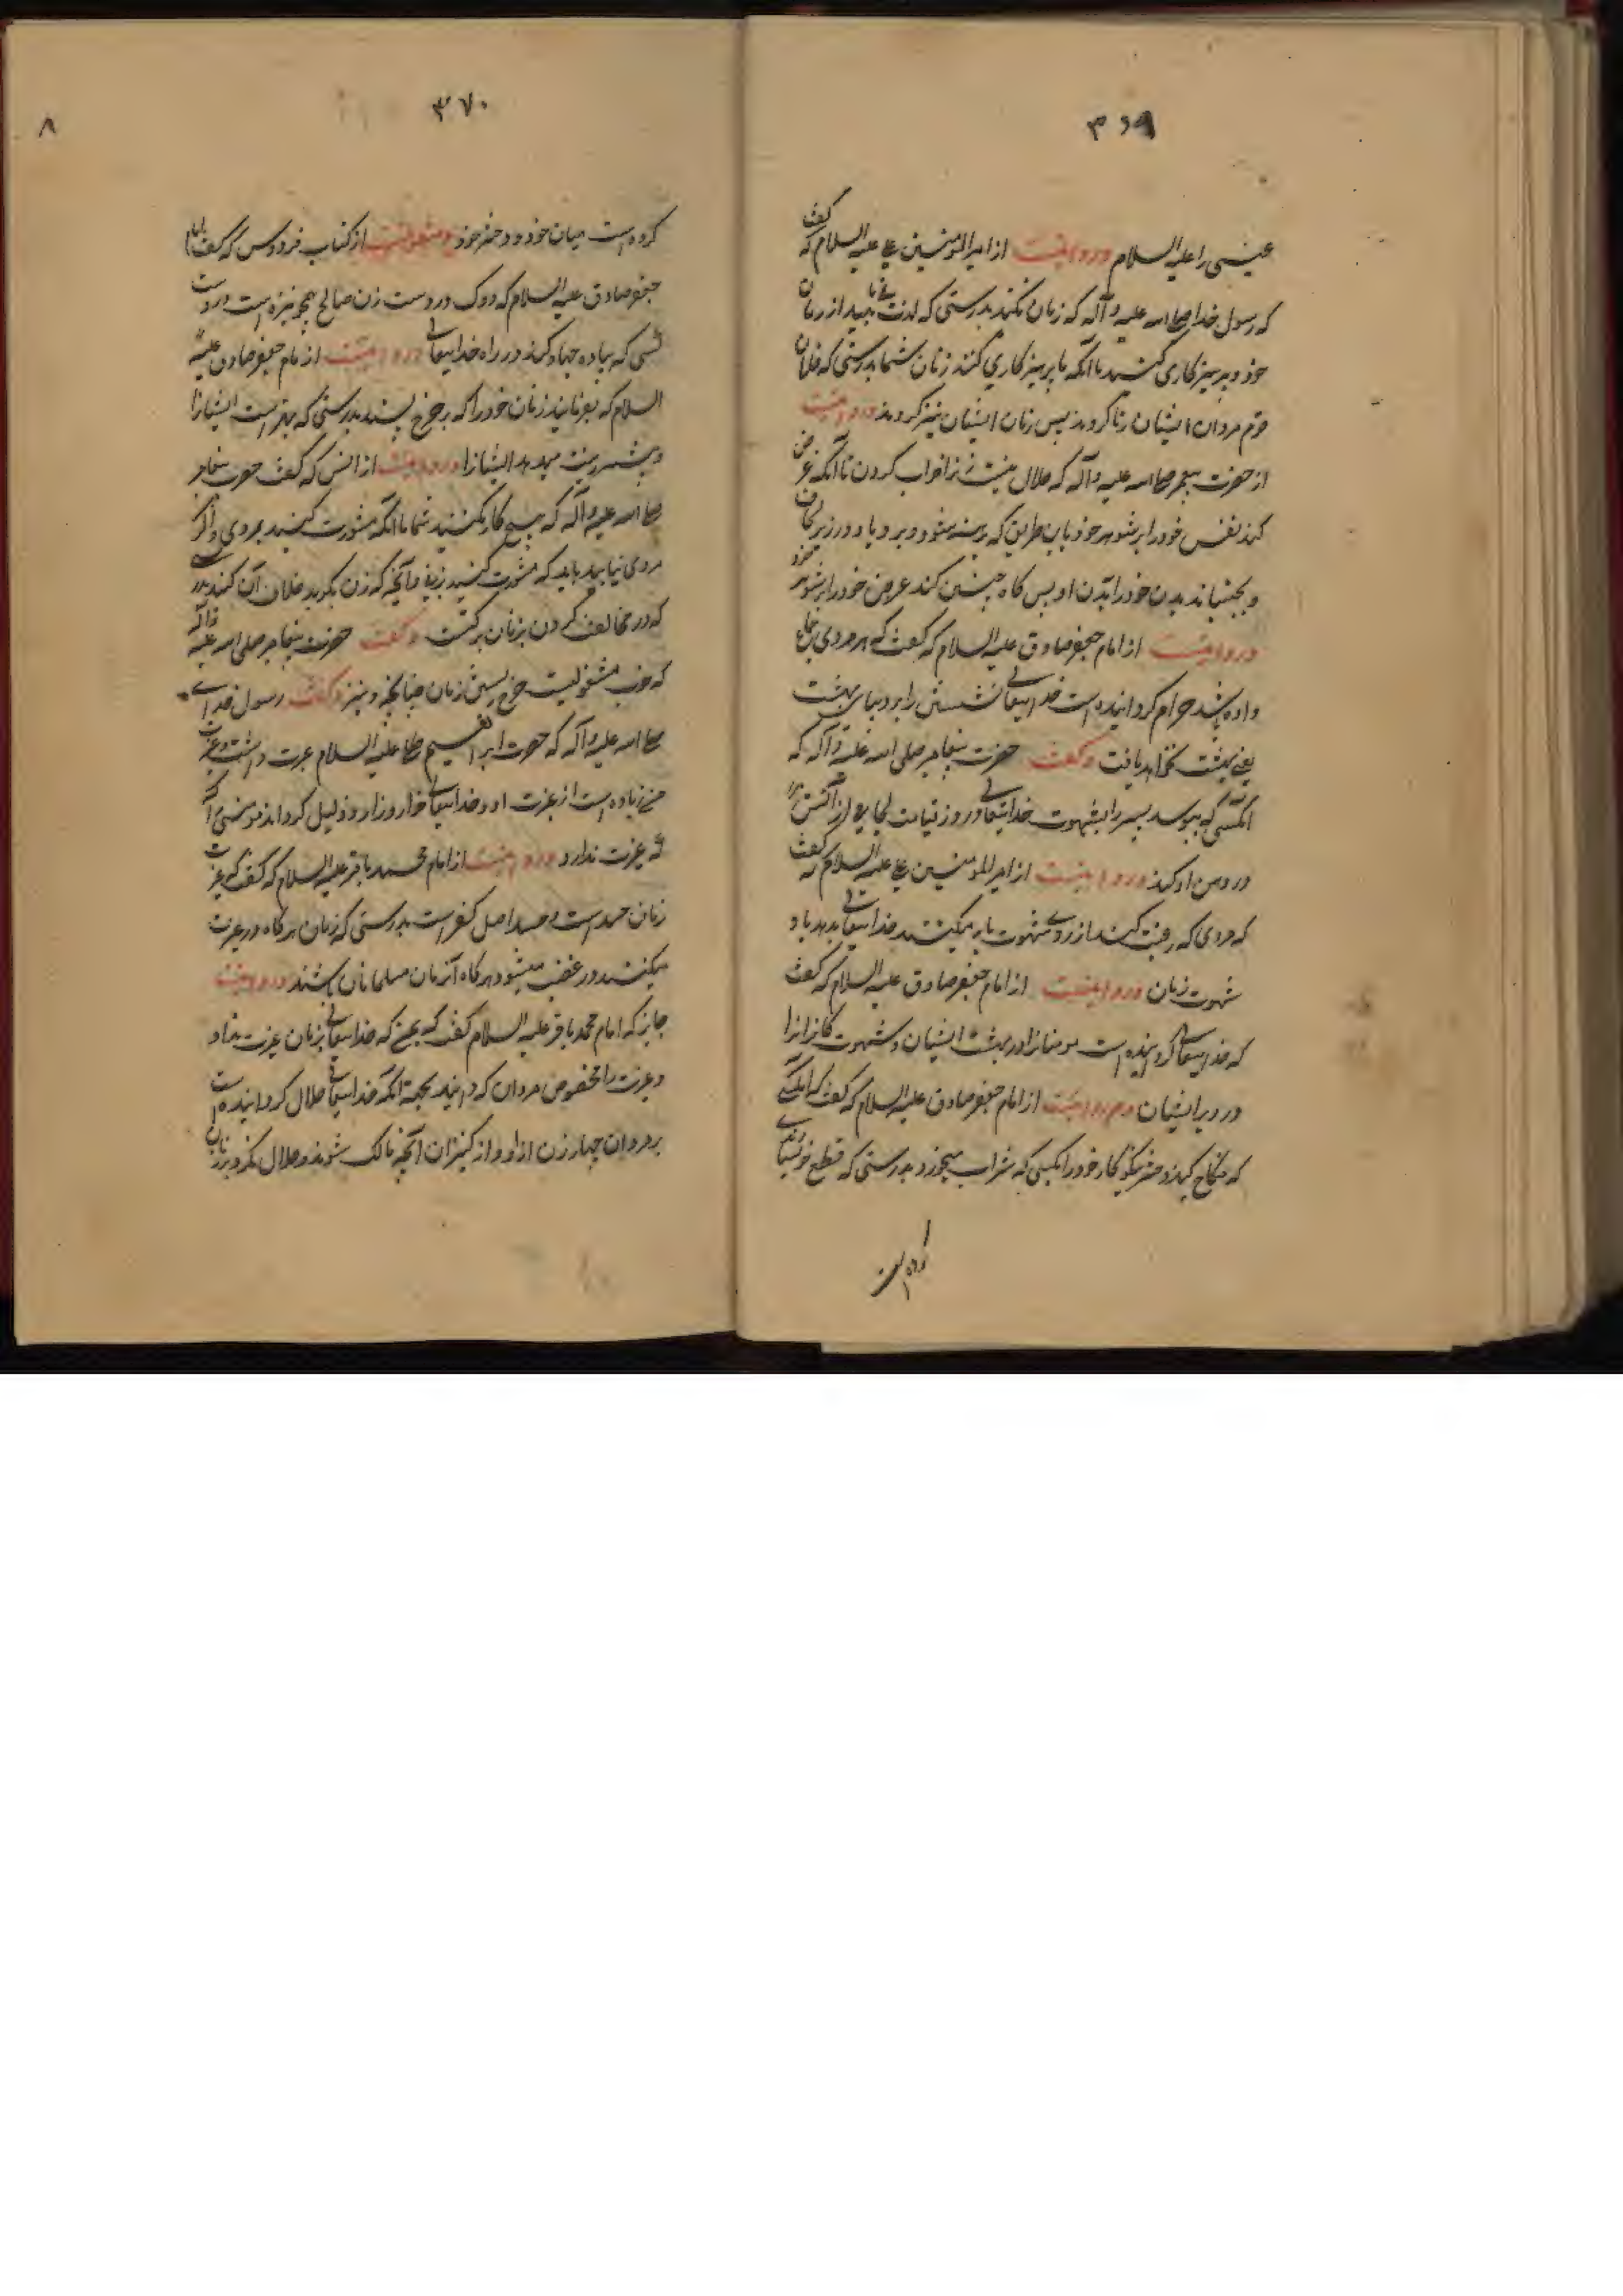 ۳۶۹
عیسی را علیه السلام و روایتست از امیر المؤمنین علی علیه السلام که گفت
که رسول خدا صلی الله علیه و آله که زنان نکنید بدرستی که لذت از زنان
خود و پرهیزکاری کنید تا آنکه با پرهیزکاری کنند زنان شما بدرستی که فلان
قوم مردان ایشان زنا کردند پس زنان ایشان نیز کردند و روایتست
از حضرت پیغمبر صلی الله علیه و آله که حلال نیست زنرا خواب کردن تا آنکه عرض
کند نفس خود را بر شوهر خود باین طریق که برهنه شود و برود در زیر لحاف
و بچسباند بدن خود را ببدن او پس گاه چنین کند عرض خود را بر شوهر خود
و روایتست از امام جعفر صادق علیه السلام که گفت که هر مردی که جماع
داده شد حرام گردانیده است خدایتعالی نشستن را بر دیبای بهشت
یعنی بهشت نخواهد یافت و گفت حضرت پیغامبر صلی الله علیه و آله که
آنکسی که ببوسد پسر را بشهوت خدایتعالی روز قیامت لجامی از آتش
در دهن او کند و روایتست از امیر المؤمنین علی علیه السلام که گفت
که مردی که رغبت کنند از روی شهوت باو میکنند خدایتعالی بدهد باو
شهوت زنان و روایتست از امام جعفر صادق علیه السلام که گفت
که خدایتعالی گردانیده است مومنانرا در پشت ایشان و شهوت کافرانرا
در دبر ایشان و روایتست از امام جعفر صادق علیه السلام که گفت که آنکسی
که نکاح کند دختر نیکوکار خود را بکسی که شراب میخورد بدرستی که قطع خویشاوندی
کرده است
۳۷۰
۸
کرده است میان خود و دختر خود و منقولست از کتاب فردوس که گفت امام
جعفر صادق علیه السلام که دوک در دست زن صالح همچو نیزه است در دست
کسی که جهاد کند در راه خدایتعالی و روایتست از امام جعفر صادق علیه
السلام که بفرمایید زنان خود را که بدرستی که بهتر است ایشانرا
و زینت میدهد ایشانرا و روایتست از انس که گفت حضرت پیغامبر
صلی الله علیه و آله که هیچ کار نکنید شما تا آنکه مشورت کنید بمردی و اگر
مردی نیابید باید که مشورت کنید بزنی و آنچه که زن بگوید خلاف آن کنید
که در مخالفت کردن بزنان برکتست و گفت حضرت پیغامبر صلی الله علیه و آله
که خوب مشغولیست زنان و نیز گفت رسول خدای
صلی الله علیه و آله که حضرت ابراهیم علیه السلام غیرت داشت و غیرت
من زیاده است از غیرت او و خدایتعالی خوار و زار و ذلیل گرداند مومنی را
که غیرت ندارد و روایتست از امام محمد باقر علیه السلام که گفت که غیرت
زنان حسد است و حسد اصل کفر است بدرستی که زنان هرگاه در غیرت
میکنند در غضب میشود هرگاه آنزنان مسلمانان باشند و روایتست
جابر که امام محمد باقر علیه السلام گفت که خدایتعالی بزنان غیرت نداد
و غیرت را مخصوص مردان گردانید بجهة آنکه خدایتعالی حلال گردانیده است
بر مردان چهار زن آزاد و از کنیزان آنچه مالک شوند و حلال نکرد بر زنان